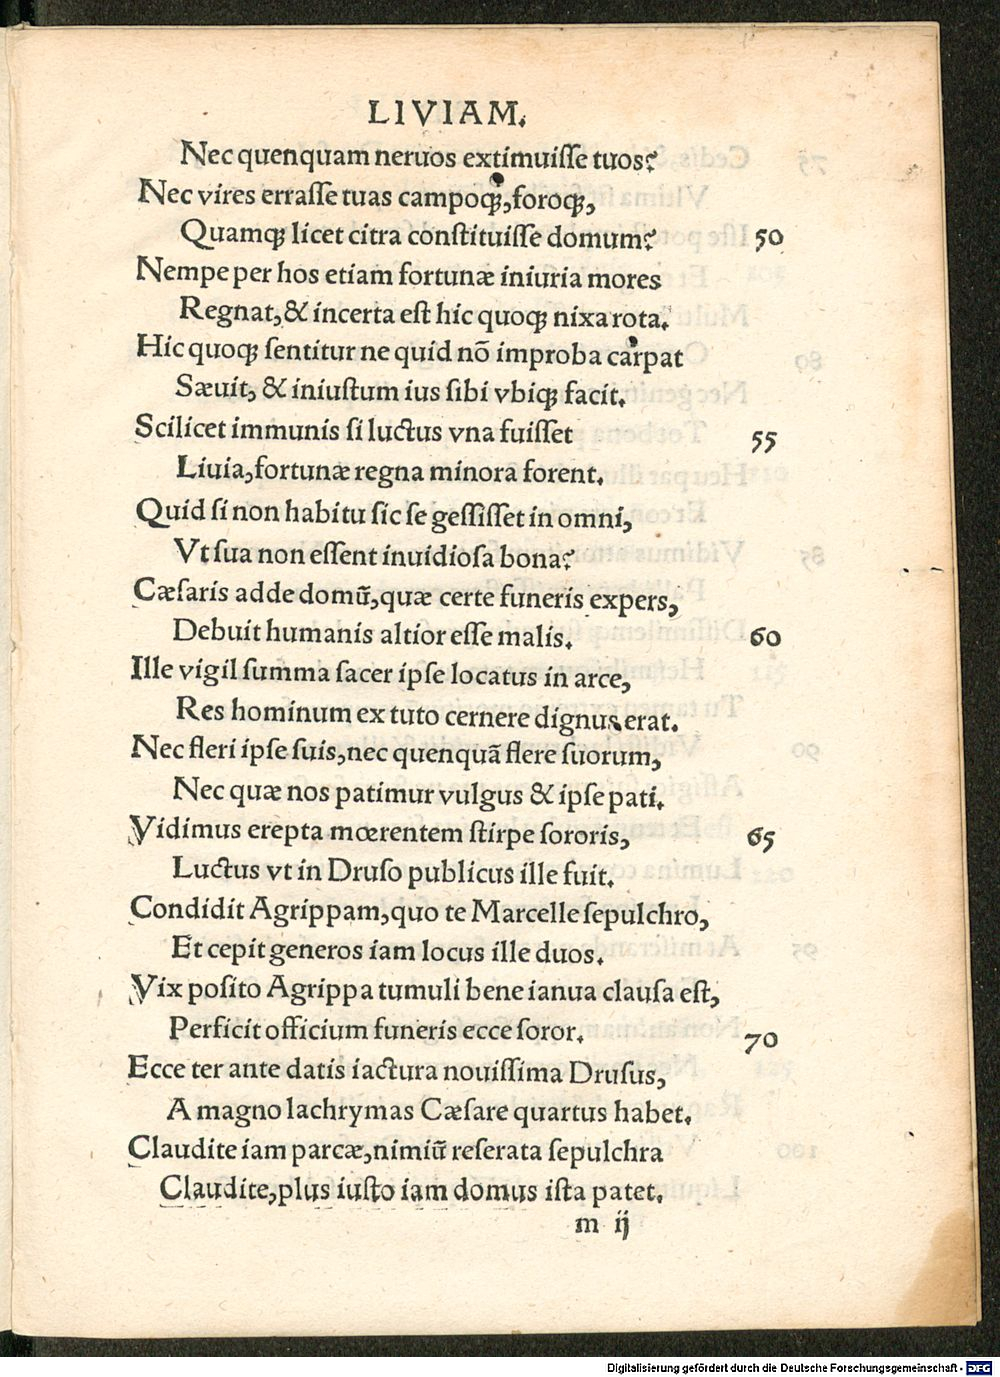 LIVIAM.
Nec quenquam neruos extimuiſſe tuos?
Nec vires erraſſe tuas campoqꝫ, foroqꝫ,
Quamqꝫ licet citra conſtituiſſe domum? 50
Nempe per hos etiam fortunæ iniuria mores
Regnat, & incerta eſt hic quoqꝫ nixa rota.
Hic quoqꝫ ſentitur ne quid nō improba carpat
Sæuit, & iniuſtum ius ſibi vbiqꝫ facit.
Scilicet immunis ſi luctus vna fuiſſet 55
Liuia, fortunæ regna minora forent.
Quid ſi non habitu ſic ſe geſſiſſet in omni,
Vt ſua non eſſent inuidioſa bona?
Cæſaris adde domū, quæ certe funeris expers,
Debuit humanis altior eſſe malis. 60
Ille vigil ſumma ſacer ipſe locatus in arce,
Res hominum ex tuto cernere dignus erat.
Nec fleri ipſe ſuis, nec quenquā flere ſuorum,
Nec quæ nos patimur vulgus & ipſe pati.
Vidimus erepta mœrentem ſtirpe ſororis, 65
Luctus vt in Druſo publicus ille fuit.
Condidit Agrippam, quo te Marcelle ſepulchro,
Et cepit generos iam locus ille duos.
Vix poſito Agrippa tumuli bene ianua clauſa eſt,
Perficit officium funeris ecce ſoror. 70
Ecce ter ante datis iactura nouiſſima Druſus,
A magno lachrymas Cæſare quartus habet.
Claudite iam parcæ, nimiū reſerata ſepulchra
Claudite, plus iuſto iam domus iſta patet.
m ij
Digitalisierung gefördert durch die Deutsche Forschungsgemeinschaft - DFG